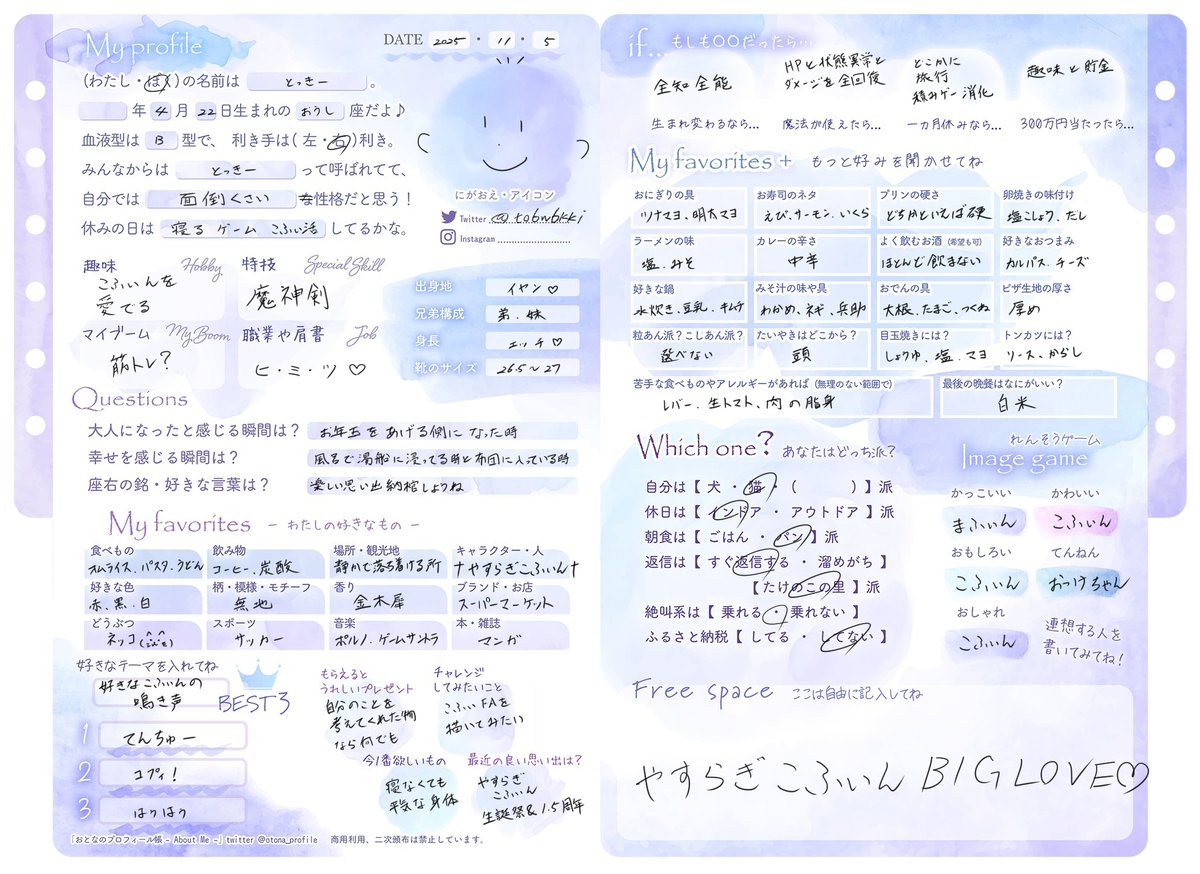 My profile
DATE 2025・11・5
(わたし・ぼく)の名前は とっきー 。
年 4 月 22 日生まれの おうし 座だよ♪
血液型は B 型で、 利き手は(左・右)利き。
みんなからは とっきー って呼ばれてて、
自分では 面倒くさい な性格だと思う!
休みの日は 寝る ゲーム こふぃ活 してるかな。
にがおえ・アイコン
Twitter @tobwbkki
Instagram
趣味 Hobby
こふぃんを
愛でる
特技 Special Skill
魔神剣
マイブーム My Boom
筋トレ?
職業や肩書 Job
ヒ・ミ・ツ♡
出身地 イヤン♡
兄弟構成 弟、妹
身長 エッチ♡
靴のサイズ 26.5~27
Questions
大人になったと感じる瞬間は? お年玉をあげる側になった時
幸せを感じる瞬間は? 風呂で湯船に浸ってる時と布団に入っている時
座右の銘・好きな言葉は? 楽しい思い出納棺しようね
My favorites - わたしの好きなもの -
食べもの
オムライス、パスタ、うどん
飲み物
コーヒー、炭酸
場所・観光地
静かで落ち着ける所
キャラクター・人
†やすらぎこふぃん†
好きな色
赤、黒、白
柄・模様・モチーフ
無地
香り
金木犀
ブランド・お店
スーパーマーケット
どうぶつ
ネッコ
スポーツ
サッカー
音楽
ポルノ、ゲームサントラ
本・雑誌
マンガ
好きなテーマを入れてね
好きなこふぃんの
鳴き声
BEST3
1 てんちゅー
2 コプィ!
3 はりはり
もらえると
うれしいプレゼント
自分のことを
考えてくれた物
なら何でも
チャレンジ
してみたいこと
こふぃFAを
描いてみたい
今1番欲しいもの
寝なくても
平気な身体
最近の良い思い出は?
やすらぎ
こふぃん
生誕祭&1.5周年
「おとなのプロフィール帳 - About Me -」twitter @otona_profile 商用利用、二次頒布は禁止しています。
if... もしも〇〇だったら…
全知全能
生まれ変わるなら…
HPと状態異常と
ダメージを全回復
魔法が使えたら…
どこかに
旅行
積みゲー消化
一カ月休みなら…
趣味と貯金
300万円当たったら…
My favorites + もっと好みを聞かせてね
おにぎりの具
ツナマヨ、明太マヨ
お寿司のネタ
えび、サーモン、いくら
プリンの硬さ
どちかといえば硬
卵焼きの味付け
塩こしょう、だし
ラーメンの味
塩、みそ
カレーの辛さ
中辛
よく飲むお酒(希望も可)
ほとんど飲まない
好きなおつまみ
カルパス、チーズ
好きな鍋
水炊き、豆乳、キムチ
みそ汁の味や具
わかめ、ネギ、兵助
おでんの具
大根、たまご、つくね
ピザ生地の厚さ
厚め
粒あん派?こしあん派?
選べない
たいやきはどこから?
頭
目玉焼きには?
しょうゆ、塩、マヨ
トンカツには?
ソース、からし
苦手な食べものやアレルギーがあれば (無理のない範囲で)
レバー、生トマト、肉の脂身
最後の晩餐はなにがいい?
白米
Which one? あなたはどっち派?
自分は【 犬 ・ 猫 ・ ( ) 】派
休日は【 インドア ・ アウトドア 】派
朝食は【 ごはん ・ パン 】派
返信は【 すぐ返信する ・ 溜めがち 】
【 たけのこの里 】派
絶叫系は【 乗れる ・ 乗れない 】
ふるさと納税【 してる ・ してない 】
れんそうゲーム
Image game
かっこいい
まふぃん
かわいい
こふぃん
おもしろい
こふぃん
てんねん
おっけちゃん
おしゃれ
こふぃん
連想する人を
書いてみてね!
Free space ここは自由に記入してね
やすらぎこふぃん BIG LOVE♡